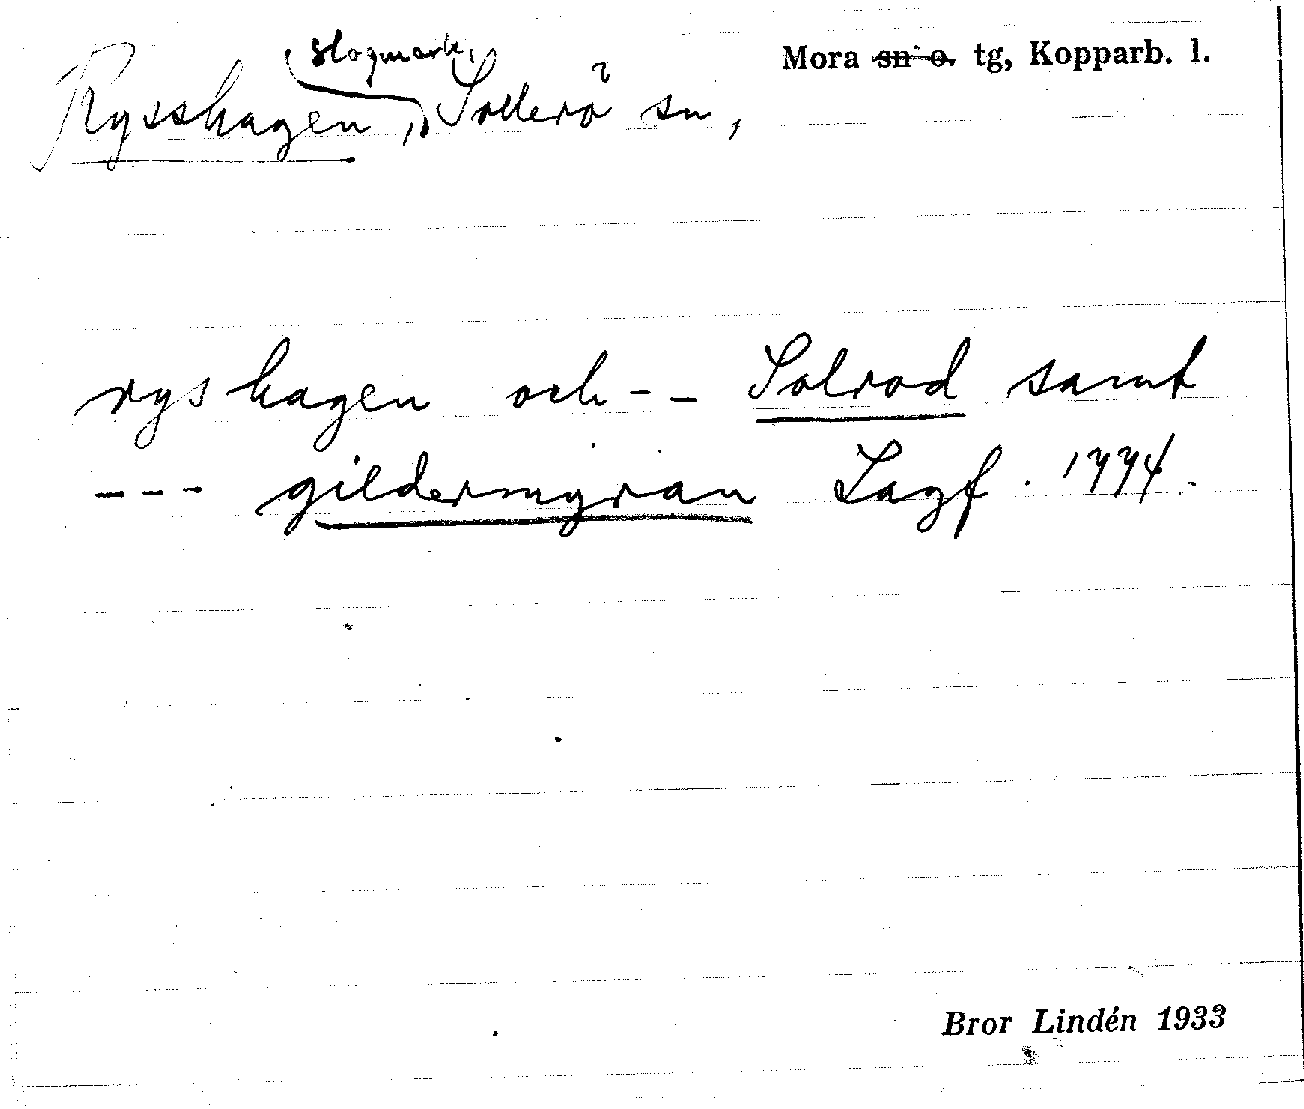 slogmark,
Mora sn o. tg, Kopparb. l.
Rysshagen, Sollerö sn,
ryshagen och -- Solrod samt
--- gildermyran Lagf. 1774.
Bror Lindén 1933